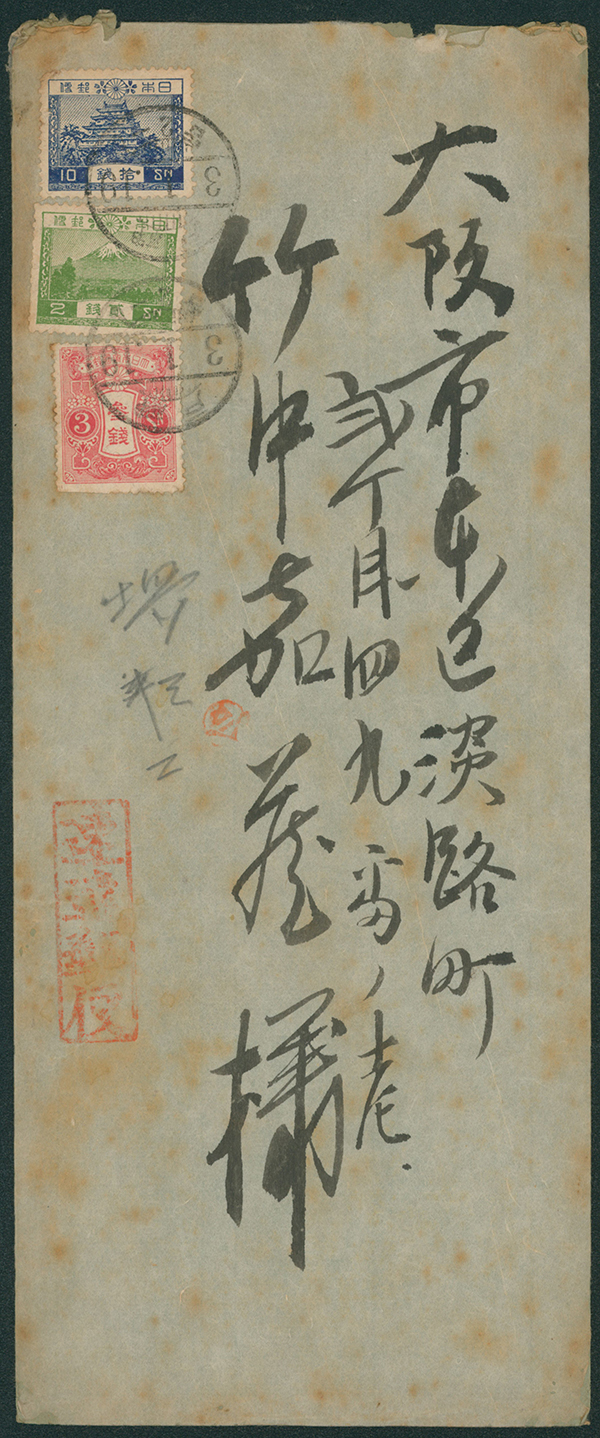 大阪市東区淡路町
弐丁目四九番ノ
竹中嘉蔵様
日本郵便
10 拾銭 SN
日本郵便
2 貳銭 SN
3 参銭
3 1 10
3 1 10
二
郵便